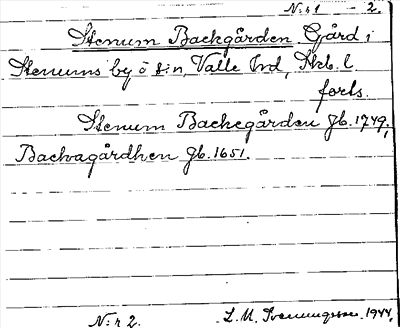 N:r 1 — 2.
Stenum Backgården Gård i
Stenums by o s:n, Valle hd, Skb. l.
forts.
Stenum Backegården Jb. 1749,
Backagårdhen Jb. 1651.
N:r 2. L. M. Svenungsson. 1944.